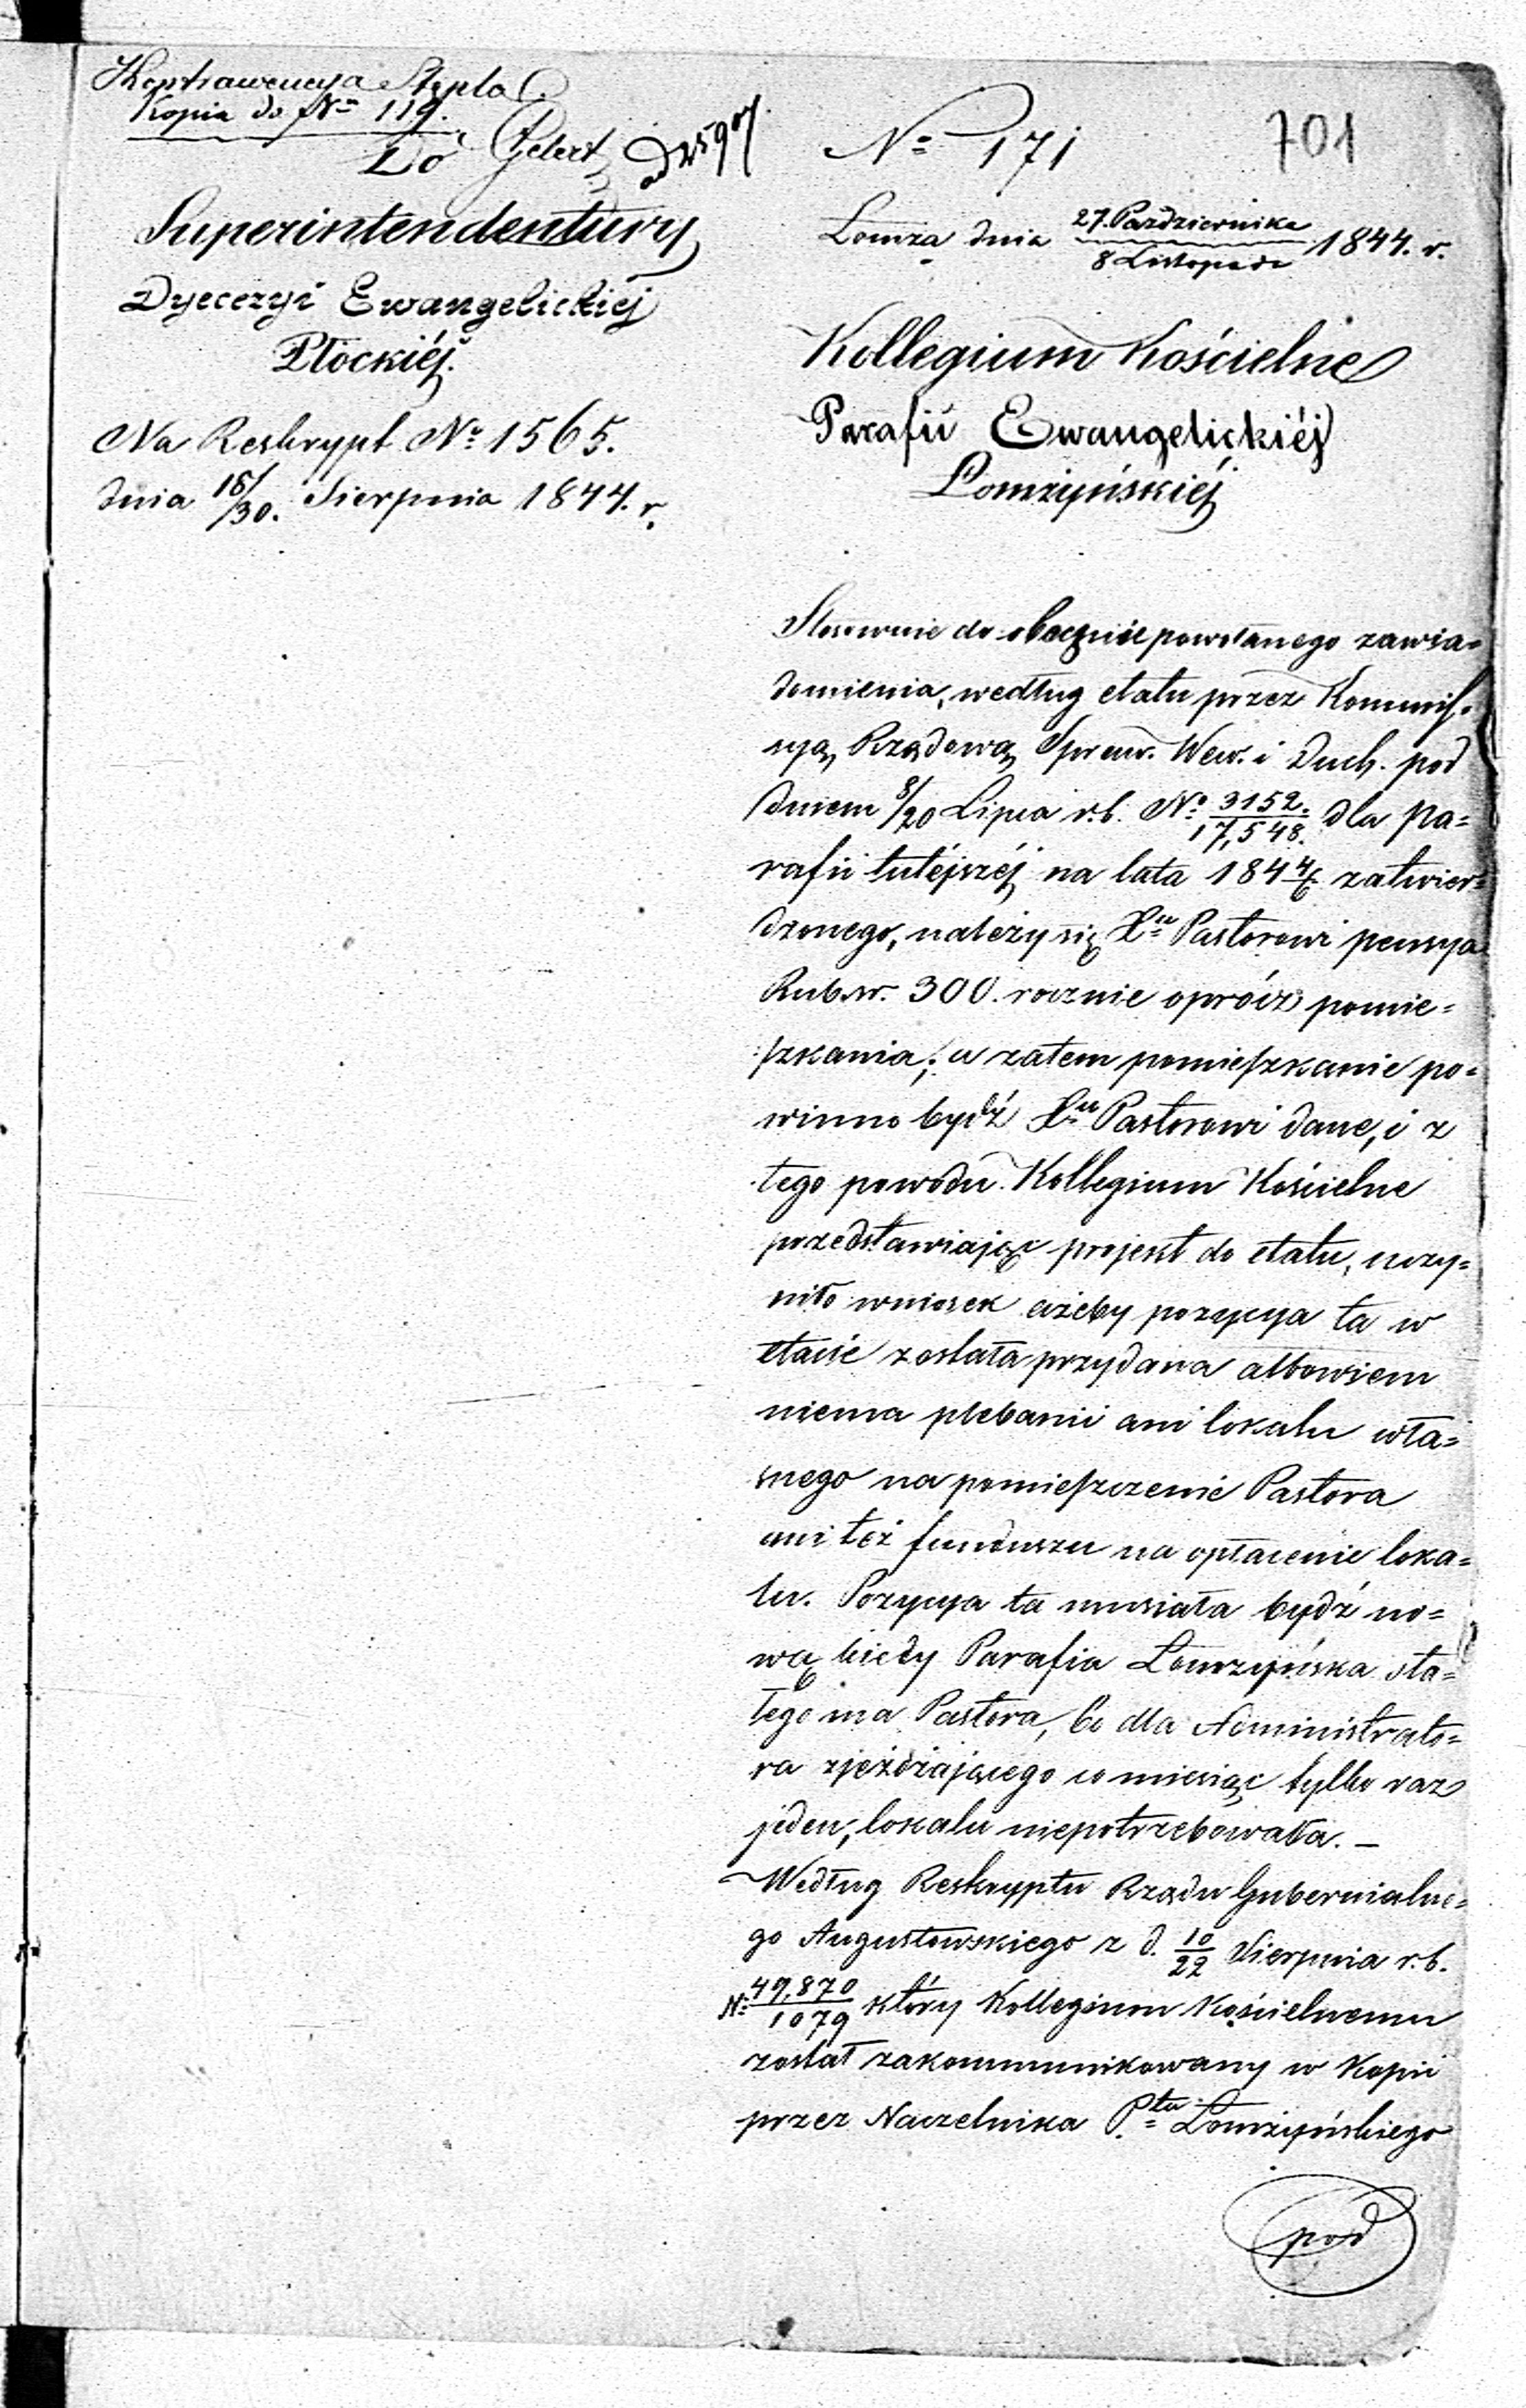 Kontrawencya Stępla
Kopia do No 119.
Do
Superintendentury
Dyecezyi Ewangelickiéj
Płockiéj.
Na Reskrypt No 1565.
dnia 18/30. Sierpnia 1844. r.
No 171
701
Łomża dnia 27. Października / 8 Listopada 1844. r.
Kollegium Kościelne
Parafii Ewangelickiéj
Łomżyńskiéj
Stosownie do obocznie powołanego zawia=
domienia, według etatu przez Kommis=
syą Rządową Spraw. Wew. i Duch. pod
dniem 8/20 Lipca r.b. No 3152./17,548. dla pa=
rafii tutéjszéj na lata 184 4/6 zatwier=
dzonego, należy się Xu Pastorowi pensya
Rub.sr. 300. rocznie oprócz pomie=
szkania; a zatem pomieszkanie po=
winno bydź Xu Pastorowi dane, i z
tego powodu Kollegium Kościelne
przedstawiając projekt do etatu, uczy=
niło wniosek ażeby pozycya ta w
etacie została przydana albowiem
niema plebanii ani lokalu wła=
snego na pomieszczenie Pastora
ani też funduszu na opłacenie loka=
lu. Pozycya ta musiała bydź no=
wą kiedy Parafia Łomżyńska sta=
łego ma Pastora, bo dla Administrato=
ra zjeżdżającego co miesiąc tylko raz
jeden, lokalu niepotrzebowała. —
Według Reskryptu Rządu Gubernialne=
go Augustowskiego z d. 10/22 Sierpnia r.b.
No 49,870/1079 który Kollegium Kościelnemu
został zakommunikowany w Kopii
przez Naczelnika Ptu Łomżyńskiego
pod